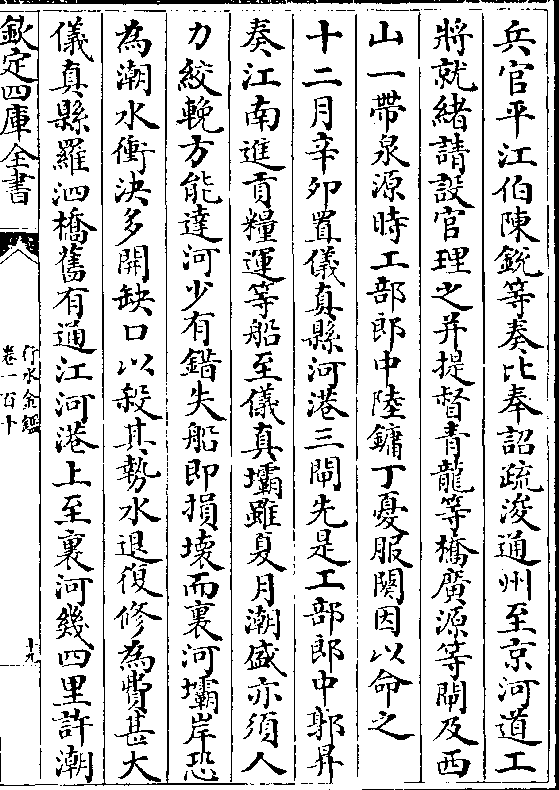 兵官平江伯陳銳等奏比奉詔疏浚通州至京河道工
將就緒請設官理之并提督青龍等橋廣源等閘及西
山一帶泉源時工部郎中陸鏞丁憂服闋因以命之
十二月辛卯置儀真縣河港三閘先是工部郎中郭昇
奏江南進貢糧運等船至儀真壩雖夏月潮盛亦須人
力絞輓方能達河少有錯失船即損壞而裏河壩岸恐
為潮水衝決多開缺口以殺其勢水退復修為費甚大
儀真縣羅泗橋舊有通江河港上至裏河幾四里許潮
欽定四庫全書
行水金鑑
卷一百十
十九